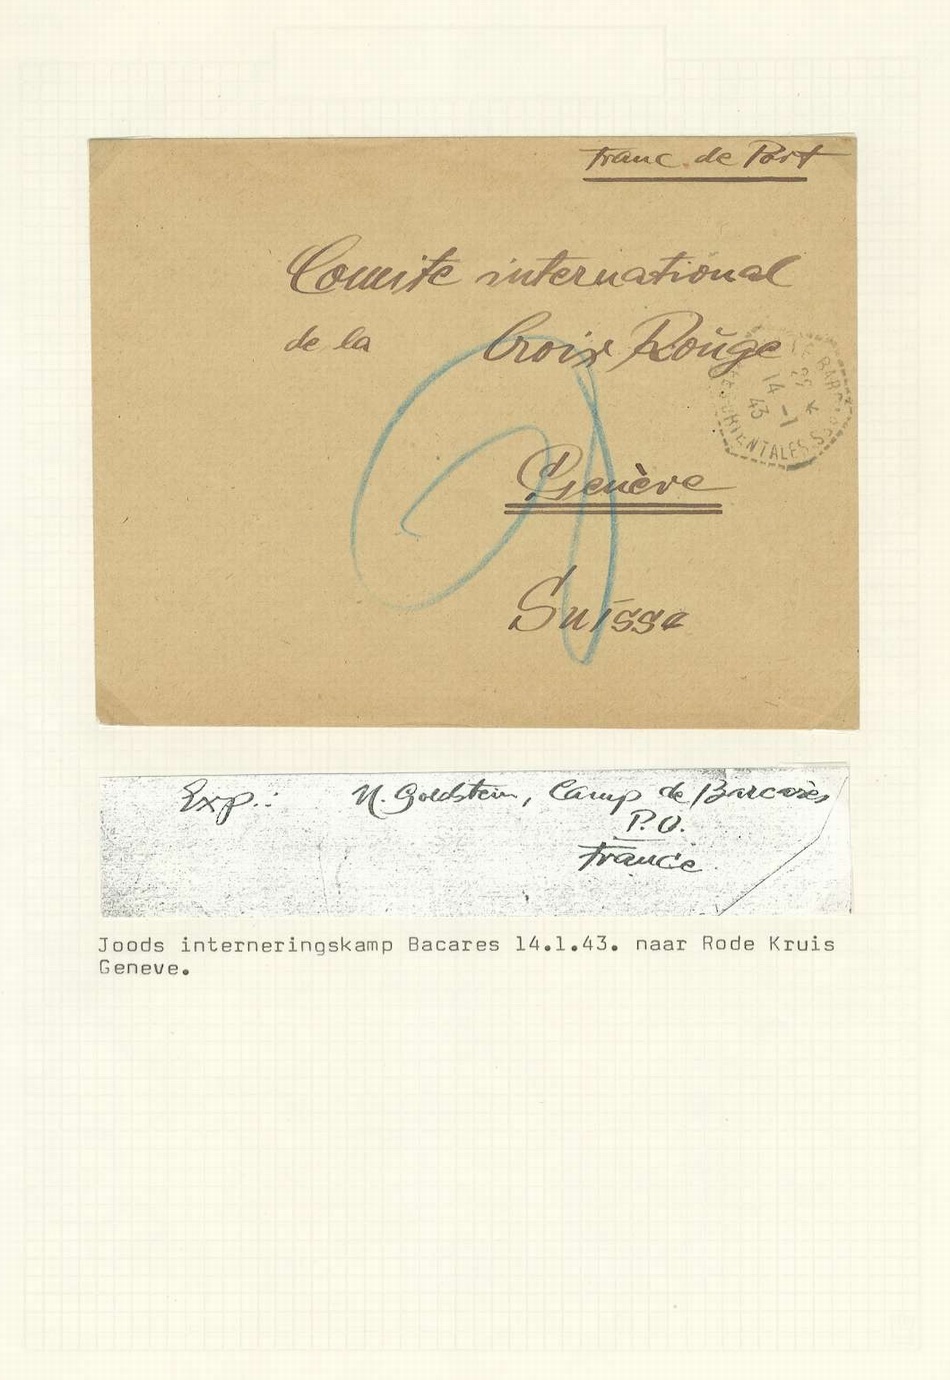 Franc. de Port
Comite international
de la Croix Rouge
Genève
Suisse
29 *
14 - 1
43
ORIENTALES
Exp.: N. Goldstein, Camp de Barcarès
P.O.
France
Joods interneringskamp Bacares 14.1.43. naar Rode Kruis
Geneve.